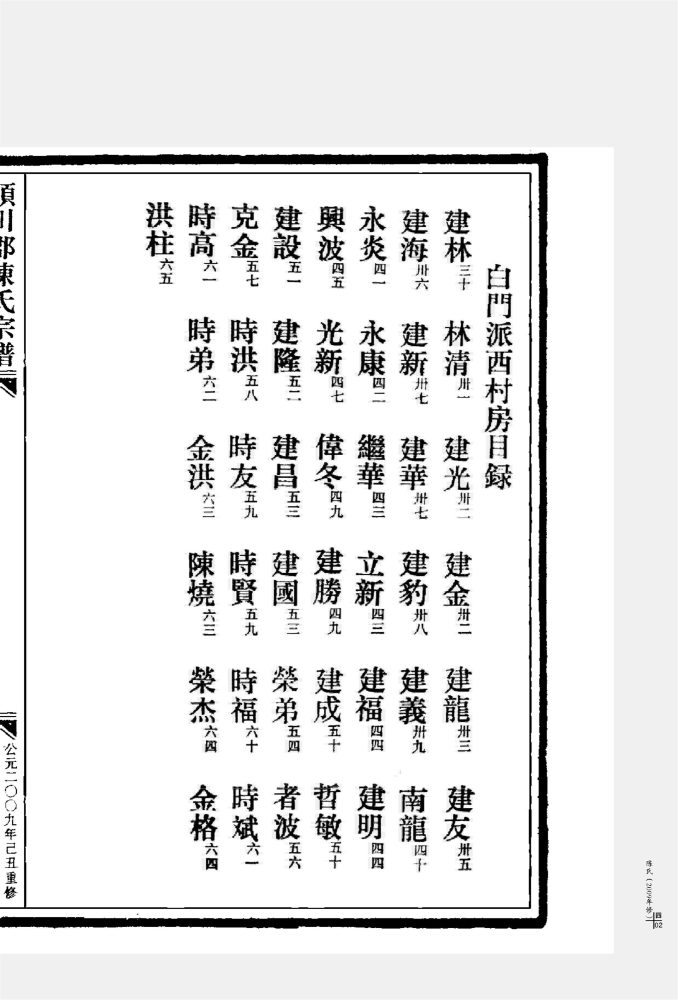 白門派西村房目録
建林三十 林清卅一 建光卅二 建金卅二 建龍卅三 建友卅五
建海卅六 建新卅七 建華卅七 建豹卅八 建義卅九 南龍四十
永炎四一 永康四二 繼華四三 立新四三 建福四四 建明四四
興波四五 光新四七 偉冬四九 建勝四九 建成五十 哲敏五十
建設五一 建隆五二 建昌五三 建國五三 榮弟五四 者波五六
克金五七 時洪五八 時友五九 時賢五九 時福六十 時斌六一
時高六一 時弟六二 金洪六三 陳燒六三 榮杰六四 金格六四
洪柱六五
潁川郡陳氏宗譜
公元二〇〇九年己丑重修
陈氏（2009年修）
四
02